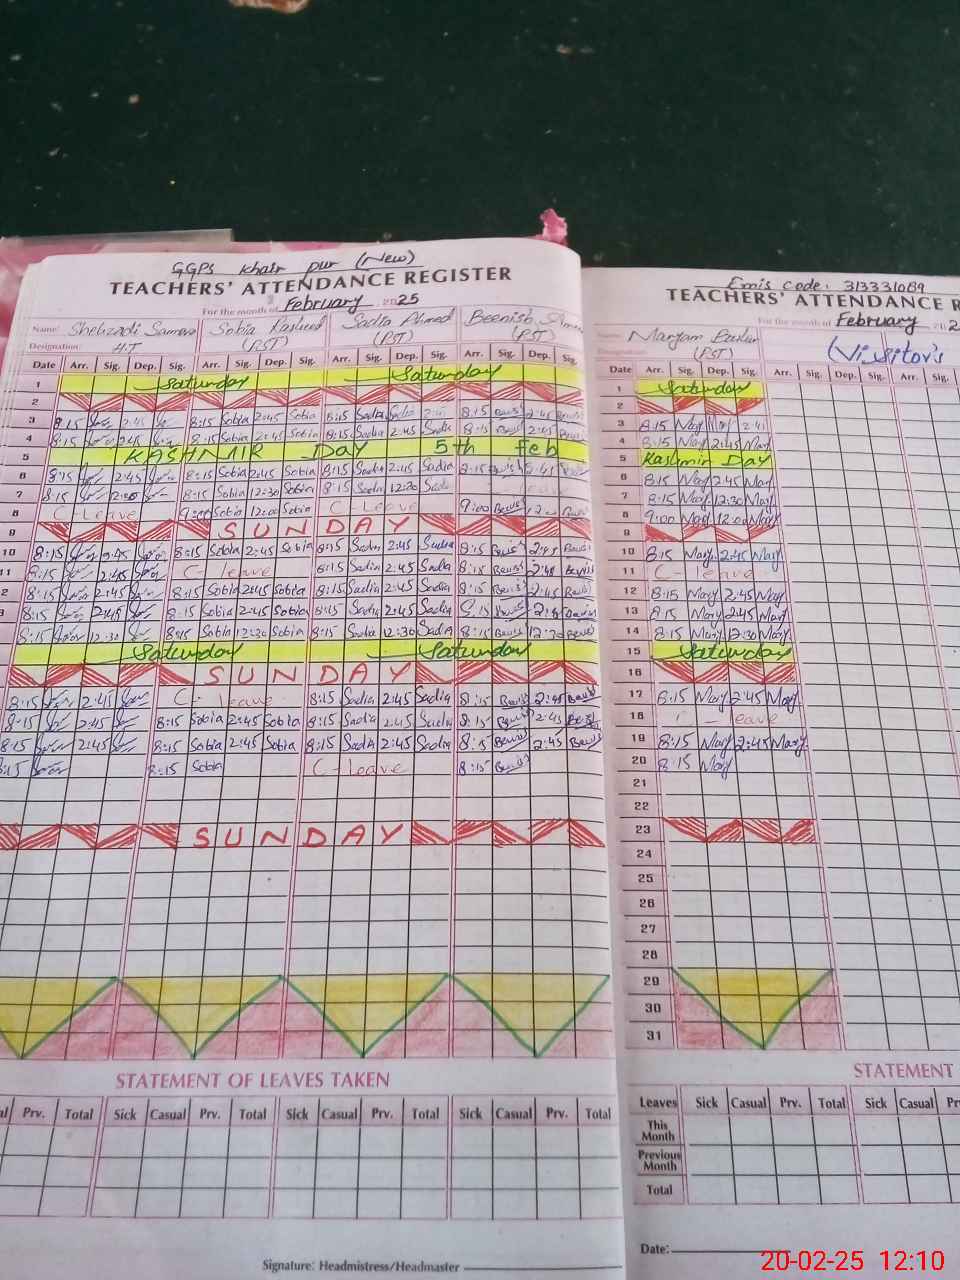 GGPS Khair pur (New)
TEACHERS' ATTENDANCE REGISTER
For the month of February 2025
Name: Shehzadi Sameen Sobia Rasheed Sadia Ahmed Beenish
Designation: H.T (PST) (PST) (PST)
Date Arr. Sig. Dep. Sig. Arr. Sig. Dep. Sig. Arr. Sig. Dep. Sig. Arr. Sig. Dep. Sig.
1 Saturday Saturday
2
3 8:15 2:45 8:15 Sobia 2:45 Sobia 8:15 Sadia 8:15 2:45
4 8:15 2:45 8:15 Sobia 2:45 Sobia 8:15 Sadia 2:45 Sadia 8:15 2:45
5 KASHMIR DAY 5th feb
6 8:15 2:45 8:15 Sobia 2:45 Sobia 8:15 Sadia 2:45 Sadia 8:15
7 8:15 8:15 Sobia 12:30 Sobia 8:15 Sadia 12:30 leave
8 C-Leave 9:00 Sobia 12:00 Sobia C-Leave 9:00
9 SUNDAY
10 8:15 2:45 8:15 Sobia 2:45 Sobia 8:15 Sadia 2:45 Sadia 8:15 2:45
11 8:15 2:45 C-leave 8:15 Sadia 2:45 Sadia 8:15
2 8:15 2:45 8:15 Sobia 2:45 Sobia 8:15 Sadia 2:45 Sadia 8:15 2:45
3 8:15 2:45 8:15 Sobia 2:45 Sobia 8:15 Sadia 2:45 Sadia 8:15
8:15 12:30 8:15 Sobia Sobia 8:15 Sadia 12:30 Sadia 8:15
Saturday Saturday
SUNDAY
8:15 2:45 C-leave 8:15 Sadia 2:45 Sadia 8:15 2:45
8:15 2:45 8:15 Sobia 2:45 Sobia 8:15 Sadia 2:45 Sadia 8:15 2:45
8:15 2:45 8:15 Sobia 2:45 Sobia 8:15 Sadia 2:45 Sadia 8:15 2:45
8:15 8:15 Sobia C-leave 8:15
SUNDAY
STATEMENT OF LEAVES TAKEN
Prv. Total Sick Casual Prv. Total Sick Casual Prv. Total Sick Casual Prv. Total
Signature: Headmistress/Headmaster
Emis Code: 313331089
TEACHERS' ATTENDANCE R
For the month of February 202
Name: Maryam
Designation: (PST) (Visitor's
Date Arr. Sig. Dep. Sig. Arr. Sig. Dep. Sig. Arr. Sig.
1 Saturday
2
3 8:15 May 2:45
4 8:15 May 2:45 May
5 Kashmir Day
6 8:15 May 2:45 May
7 8:15 May 12:30 May
8 9:00 May 12:00 May
9
10 8:15 May 2:45 May
11 C-leave
12 8:15 May 2:45 May
13 8:15 May 2:45 May
14 8:15 May 12:30 May
15 Saturday
16
17 8:15 May 2:45 May
18 leave
19 8:15 May 2:45 May
20 8:15 May
21
22
23
24
25
26
27
28
29
30
31
STATEMENT
Leaves Sick Casual Prv. Total Sick Casual Pr
This Month
Previous Month
Total
Date:
20-02-25 12:10